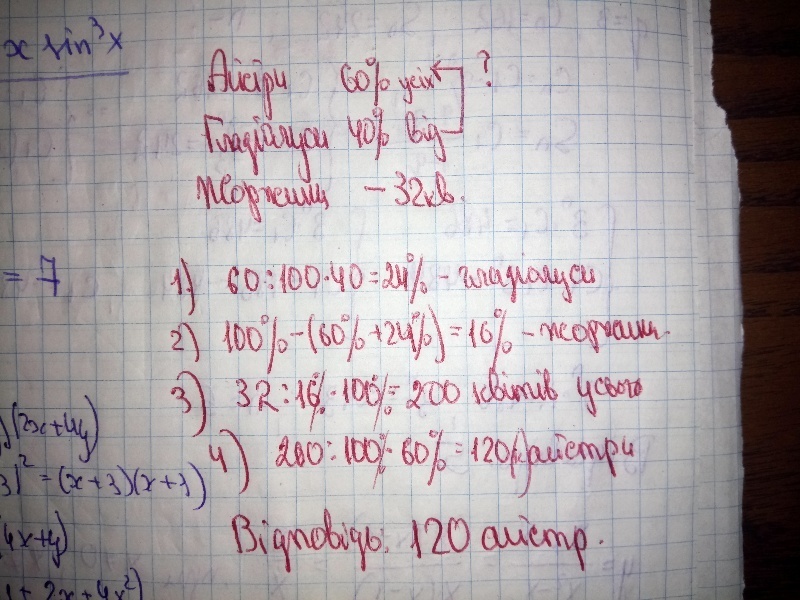 x sin³x
Айстри 60% усіх ?
Гладіолуси 40% від
Жоржини – 32 кв.
= 7
1) 60:100·40=24% – гладіолуси
2) 100%–(60%+24%)=16% – жоржини.
3) 32:16%·100%=200 квітів усього
)(2x+4y)
4) 200:100%·60%=120(р)айстри
3)² =(x+3)(x+3)
4x+y)
Відповідь: 120 айстр.
1+2x+4x²)